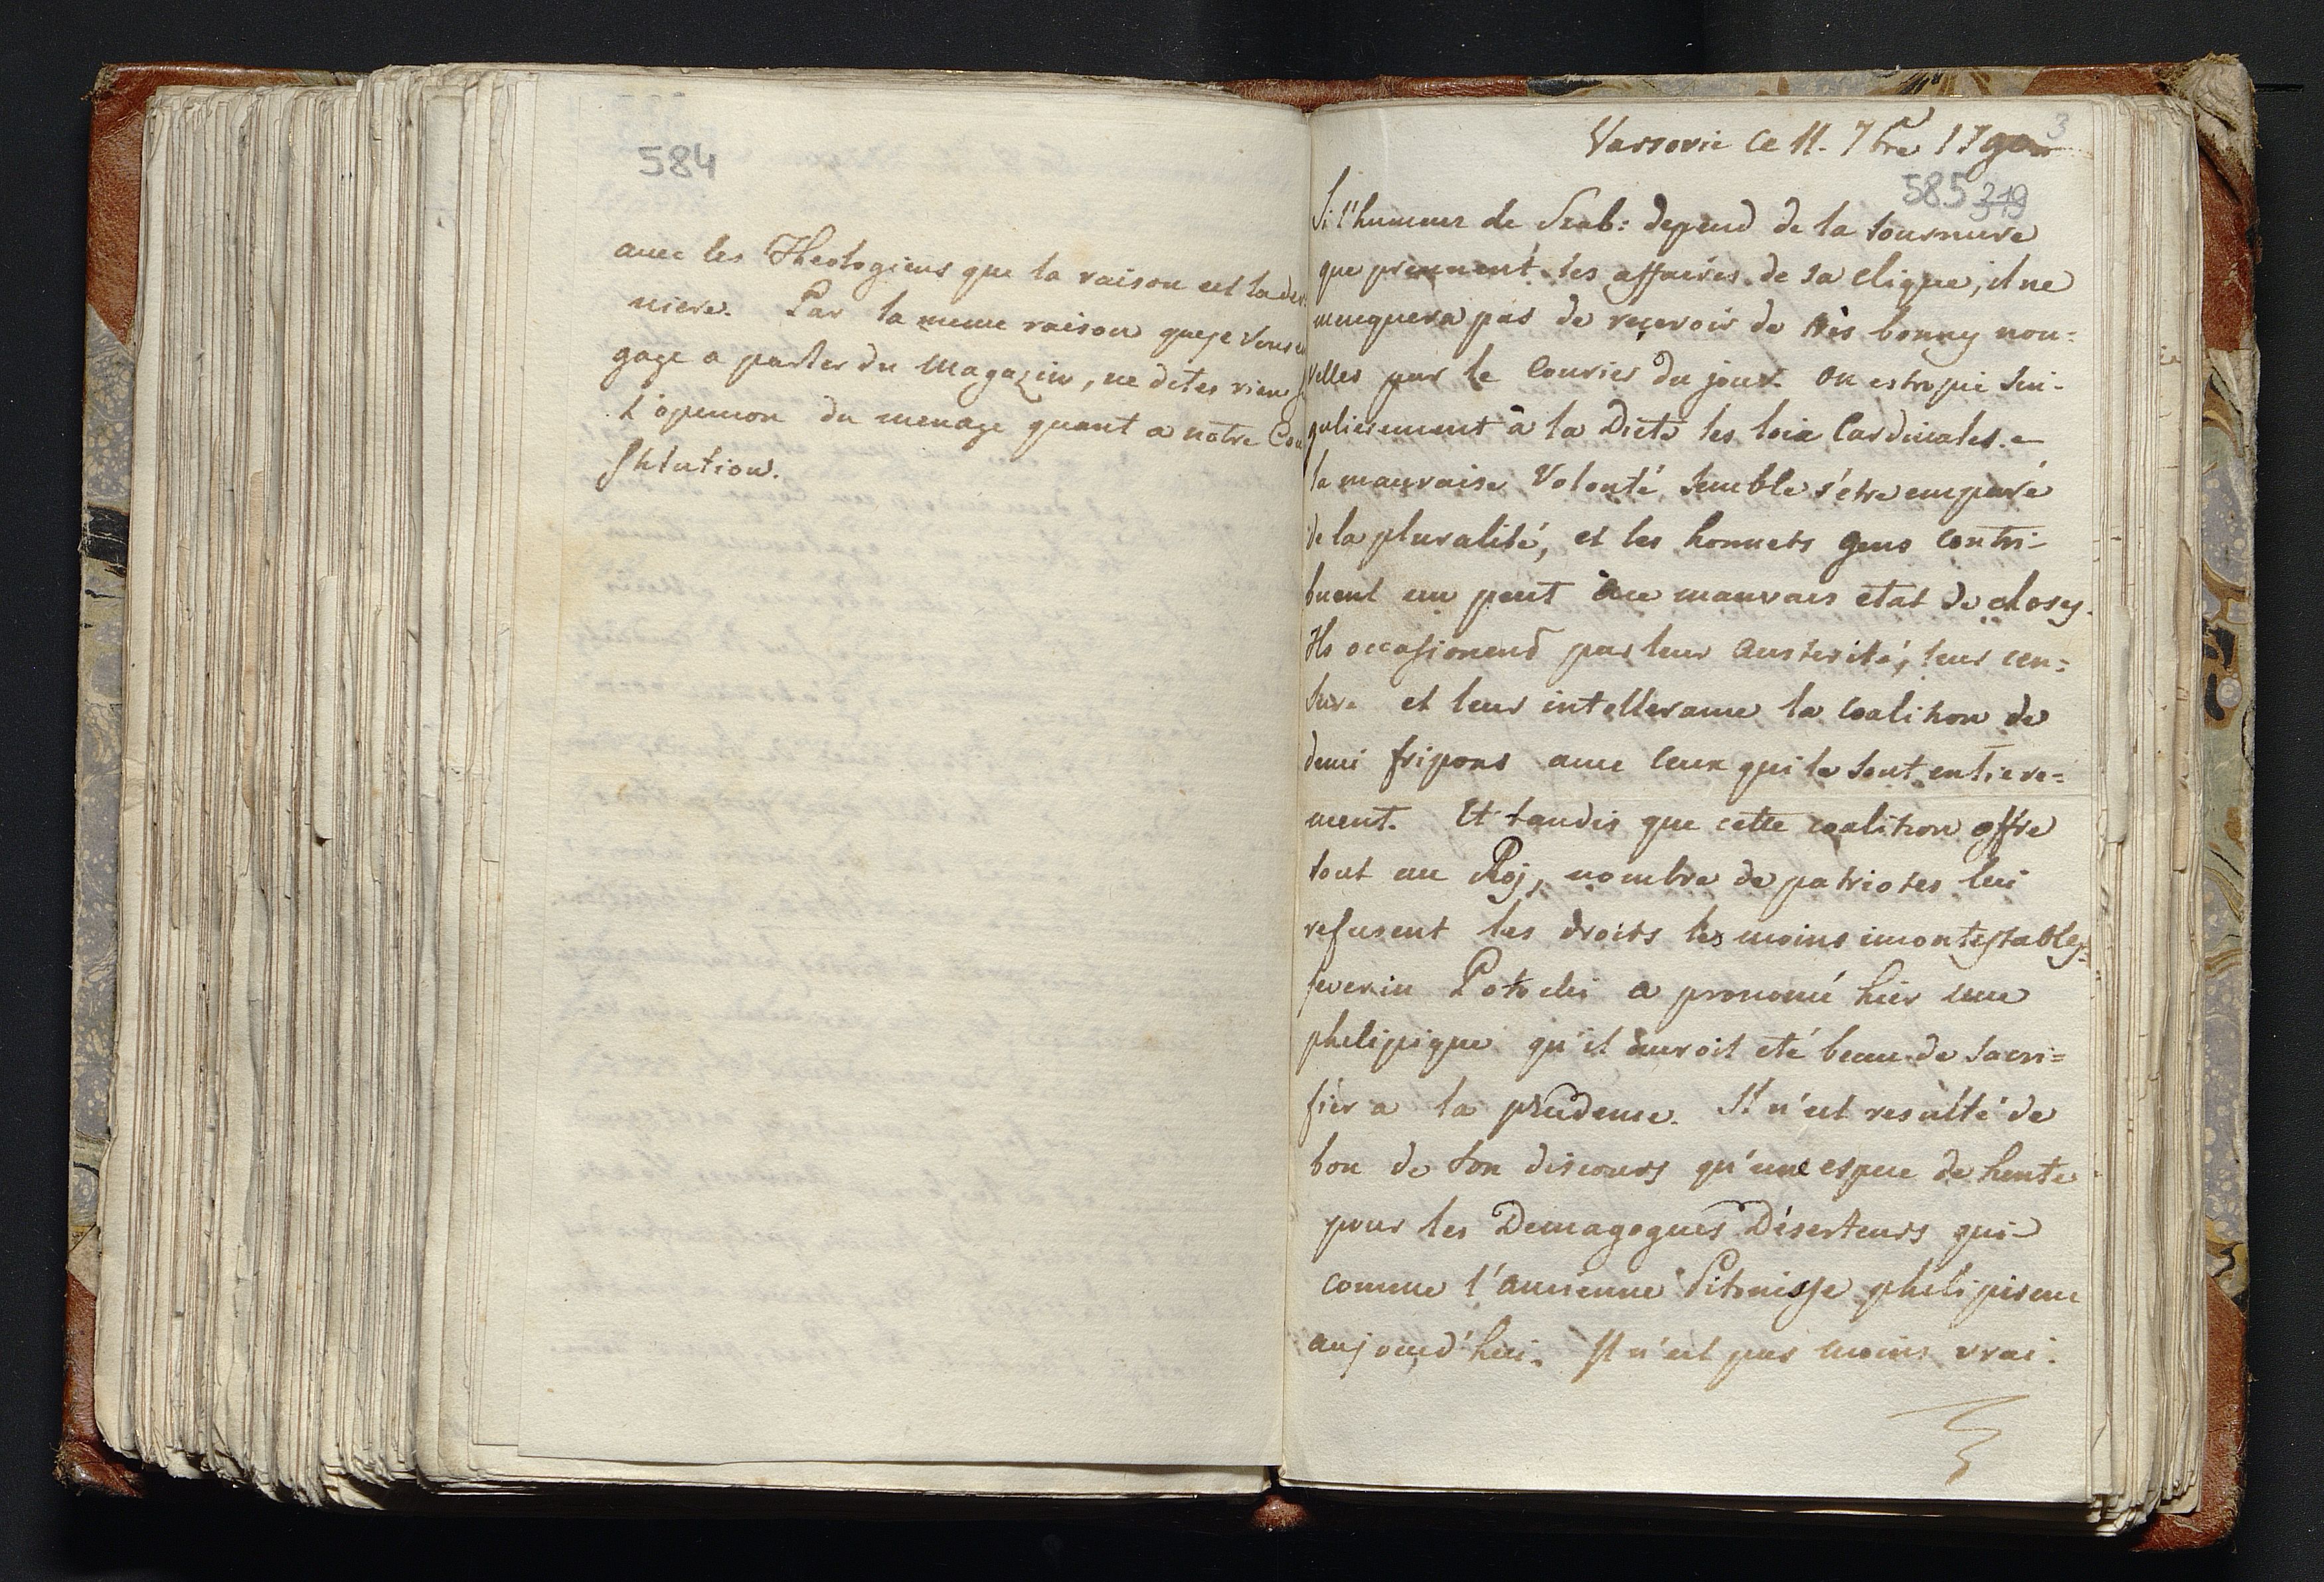 584
avec les Theologiens que la raison est la der:
niere. Par la meme raison que je vous en
gage a parler du Magazin, ne dites rien
L'opinion du menage quant a notre Con
stitution.
3
Varsovie ce 11. 7bre 1790
585 319
Si l'humeur de Scab: depend de la tournure
que prennent les affaires de sa clique, il ne
menquera pas de reçevoir de très bonnes nou=
velles par le Courier du jour. On estropie sin-
gulierement à la Diete les loix Cardinales.
la mauvaise Volonté semble s'etre emparé
de la pluralité, et les honnets gens contri-
buent un peut àce mauvais etat de choses.
Ils occasionend par leur Austerité, leur cen=
sure et leur intellerance la coalition de
demi fripons avec ceux qui le sont entiere=
ment. Et tandis que cette coalition offre
tout au Roj, nombre de patriotes lui
refusent les droits les moins incontestables
severin Potocki a prononcé hier une
phelippique qu'il auroit eté beau de sacri=
fier a la prudence. Il n'est resulté de
bon de son discours qu'une espece de honte
pour les Demagogues Déserteurs qui
comme l'ancienne Pitonisse phelipisent
aujourd'hui. Il n'est pas moins vrai.